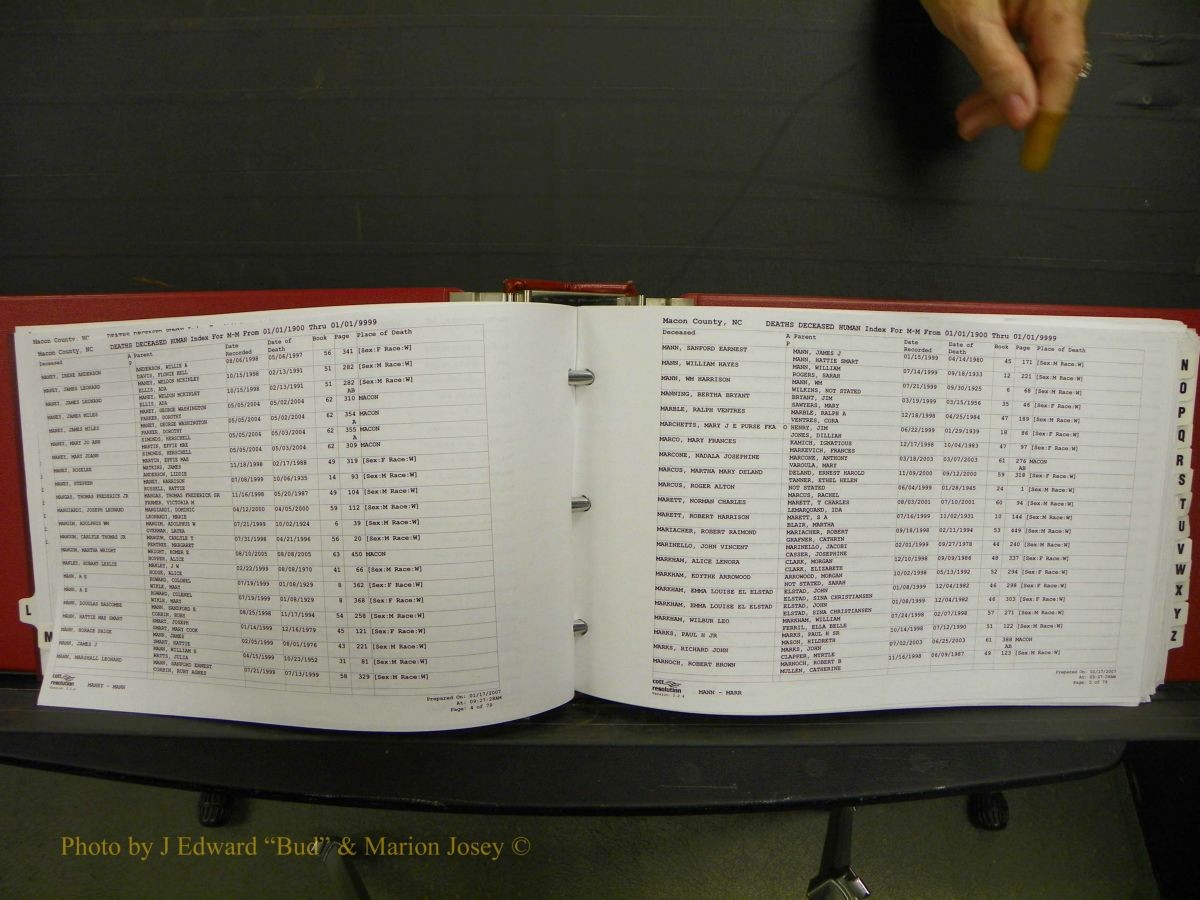 Macon County, NC DEATHS DECEASED HUMAN Index For M-M From 01/01/1900 Thru 01/01/9999
Deceased A Parent Date Recorded Date of Death Book Page Place of Death
P
MANEY, IRENE ANDERSON ANDERSON, WILLIS A 08/06/1998 05/06/1997 56 341 [Sex:F Race:W]
DAVIS, FLORIE BELL
MANEY, JAMES LEONARD MANEY, WELDON MCKINLEY 10/15/1998 02/13/1991 51 282 [Sex:M Race:W]
ELLIS, ADA
MANEY, JAMES LEONARD MANEY, WELDON MCKINLEY 10/15/1998 02/13/1991 51 282 [Sex:M Race:W]
ELLIS, ADA AB
MANEY, JAMES MILES MANEY, GEORGE WASHINGTON 05/05/2004 05/02/2004 62 310 MACON
PARKER, DOROTHY
MANEY, JAMES MILES MANEY, GEORGE WASHINGTON 05/05/2004 05/02/2004 62 354 MACON
PARKER, DOROTHY A
MANEY, MARY JO ANN SIMONDS, HERSCHELL 05/05/2004 05/03/2004 62 355 MACON
MARTIN, EFFIE MAE A
MANEY, MARY JOANN SIMONDS, HERSCHELL 05/05/2004 05/03/2004 62 309 MACON
MARTIN, EFFIE MAE
MANEY, ROSELEE WATKINS, JAMES 11/18/1998 02/17/1988 49 319 [Sex:F Race:W]
ANDERSON, LIDDIE
MANEY, STEPHEN MANEY, HARRISON 07/08/1999 10/06/1935 14 93 [Sex:M Race:W]
RUSSELL, HATTIE
MANGAS, THOMAS FREDERICK JR MANGAS, THOMAS FREDERICK SR 11/16/1998 05/20/1987 49 104 [Sex:M Race:W]
FARMER, VICTORIA M
MANGIARDI, JOSEPH LEONARD MANGIARDI, DOMINIC 04/12/2000 04/05/2000 59 112 [Sex:M Race:W]
LEONARDI, MARIE
MANGUM, ADOLPHUS WM MANGUM, ADOLPHUS W 07/21/1999 10/02/1924 6 39 [Sex:M Race:W]
OVERMAN, LAURA
MANGUM, CARLYLE THOMAS JR MANGUM, CARLYLE T 07/31/1998 04/21/1996 56 20 [Sex:M Race:W]
PENTHEE, MARGARET
MANGUM, MARTHA WRIGHT WRIGHT, HOMER E 08/10/2005 08/08/2005 63 450 MACON
HOPPER, ALICE
MANLEY, HOBART LESLIE MANLEY, J W 02/22/1999 08/08/1970 41 66 [Sex:M Race:W]
DODGE, ALICE
MANN, A E HOWARD, COLONEL 07/19/1999 01/08/1929 8 362 [Sex:F Race:W]
WIKLE, MARY
MANN, A E HOWARD, COLONEL 07/19/1999 01/08/1929 8 368 [Sex:F Race:W]
WIKLE, MARY
MANN, DOUGLAS BASCOMBE MANN, SANFORD E 08/25/1998 11/17/1994 54 258 [Sex:M Race:W]
CORBIN, RUBY
MANN, HATTIE MAE SMART SMART, JOSEPH 01/14/1999 12/16/1979 45 121 [Sex:F Race:W]
SMART, MARY COOK
MANN, HORACE BRICE MANN, JAMES 02/05/1999 08/01/1976 43 221 [Sex:M Race:W]
SMART, HATTIE
MANN, JAMES J MANN, WILLIAM H 04/15/1999 10/23/1952 31 81 [Sex:M Race:W]
WATTS, JULIA
MANN, MARSHALL LEONARD MANN, SANFORD ERNEST 07/21/1999 07/13/1999 58 329 [Sex:M Race:W]
CORBIN, RUBY AGNES
cott resolution MANEY - MANN
Prepared On: 01/17/2007
At: 09:27:28AM
Page: 4 of 79
L
M
Macon County, NC DEATHS DECEASED HUMAN Index For M-M From 01/01/1900 Thru 01/01/9999
Deceased A Parent Date Recorded Date of Death Book Page Place of Death
P
MANN, SANFORD EARNEST MANN, JAMES J 01/15/1999 04/14/1980 45 171 [Sex:M Race:W]
MANN, HATTIE SMART
MANN, WILLIAM HAYES MANN, WILLIAM 07/14/1999 09/18/1933 12 221 [Sex:M Race:W]
ROGERS, SARAH
MANN, WM HARRISON MANN, WM 07/21/1999 09/30/1925 6 66 [Sex:M Race:W]
WILKINS, NOT STATED
MANNING, BERTHA BRYANT BRYANT, JIM 03/19/1999 03/15/1956 35 46 [Sex:F Race:W]
SAWYERS, MARY
MARBLE, RALPH VENTRES MARBLE, RALPH A 12/18/1998 04/25/1984 47 189 [Sex:M Race:W]
VENTRES, CORA
MARCHETTS, MARY J E PURSE FKA O HENRY, JIM 06/22/1999 01/29/1939 18 86 [Sex:F Race:W]
JONES, DILLIAH
MARCO, MARY FRANCES KAMICH, IGNATIOUS 12/17/1998 10/04/1983 47 97 [Sex:F Race:W]
MARKEVICH, FRANCES
MARCONE, NADALA JOSEPHINE MARCONE, ANTHONY 03/18/2003 03/07/2003 61 276 MACON
VAROULA, MARY AB
MARCUS, MARTHA MARY DELAND DELAND, ERNEST HAROLD 11/09/2000 09/12/2000 59 318 [Sex:F Race:W]
TANNER, ETHEL HELEN
MARCUS, ROGER ALTON NOT STATED 06/04/1999 01/28/1945 24 1 [Sex:M Race:W]
MARCUS, RACHEL
MARETT, NORMAN CHARLES MARETT, T CHARLES 08/03/2001 07/10/2001 60 94 [Sex:M Race:W]
LEMARQUAND, IDA
MARETT, ROBERT HARRISON MARETT, S A 07/16/1999 11/02/1931 10 144 [Sex:M Race:W]
BLAIR, MARTHA
MARIACHER, ROBERT RAIMOND MARIACHER, ROBERT 09/18/1998 02/11/1994 53 449 [Sex:M Race:W]
GRAFNER, CATHRYN
MARINELLO, JOHN VINCENT MARINELLO, JACOBI 02/01/1999 09/27/1978 44 240 [Sex:M Race:W]
CASSER, JOSEPHINE
MARKHAM, ALICE LENORA CLARK, MORGAN 12/10/1998 09/09/1986 48 337 [Sex:F Race:W]
CLARK, ELIZABETH
MARKHAM, EDYTHE ARROWOOD ARROWOOD, MORGAN 10/02/1998 05/13/1992 52 294 [Sex:F Race:W]
NOT STATED, SARAH
MARKHAM, EMMA LOUISE EL ELSTAD ELSTAD, JOHN 01/08/1999 12/04/1982 46 298 [Sex:F Race:W]
ELSTAD, SINA CHRISTIANSEN
MARKHAM, EMMA LOUISE EL ELSTAD ELSTAD, JOHN 01/08/1999 12/04/1982 46 303 [Sex:F Race:W]
ELSTAD, SINA CHRISTIANSEN
MARKHAM, WILBUR LEO MARKHAM, WILLIAM 07/24/1998 02/07/1998 57 271 [Sex:M Race:W]
FERRIL, ELLA BELLE
MARKS, PAUL H JR MARKS, PAUL H SR 10/14/1998 07/12/1990 51 122 [Sex:M Race:W]
MASON, HILDRETH
MARKS, RICHARD JOHN MARKS, JOHN 07/02/2003 06/25/2003 61 388 MACON
CLAPPER, MYRTLE AB
MARNOCH, ROBERT BROWN MARNOCH, ROBERT B 11/16/1998 06/09/1987 49 123 [Sex:M Race:W]
MULLEN, CATHERINE
cott resolution MANN - MARR
Prepared On: 01/17/2007
At: 09:27:28AM
Page: 5 of 79
N
O
P
Q
R
S
T
U
V
W
X
Y
Z
Photo by J Edward “Bud” & Marion Josey ©